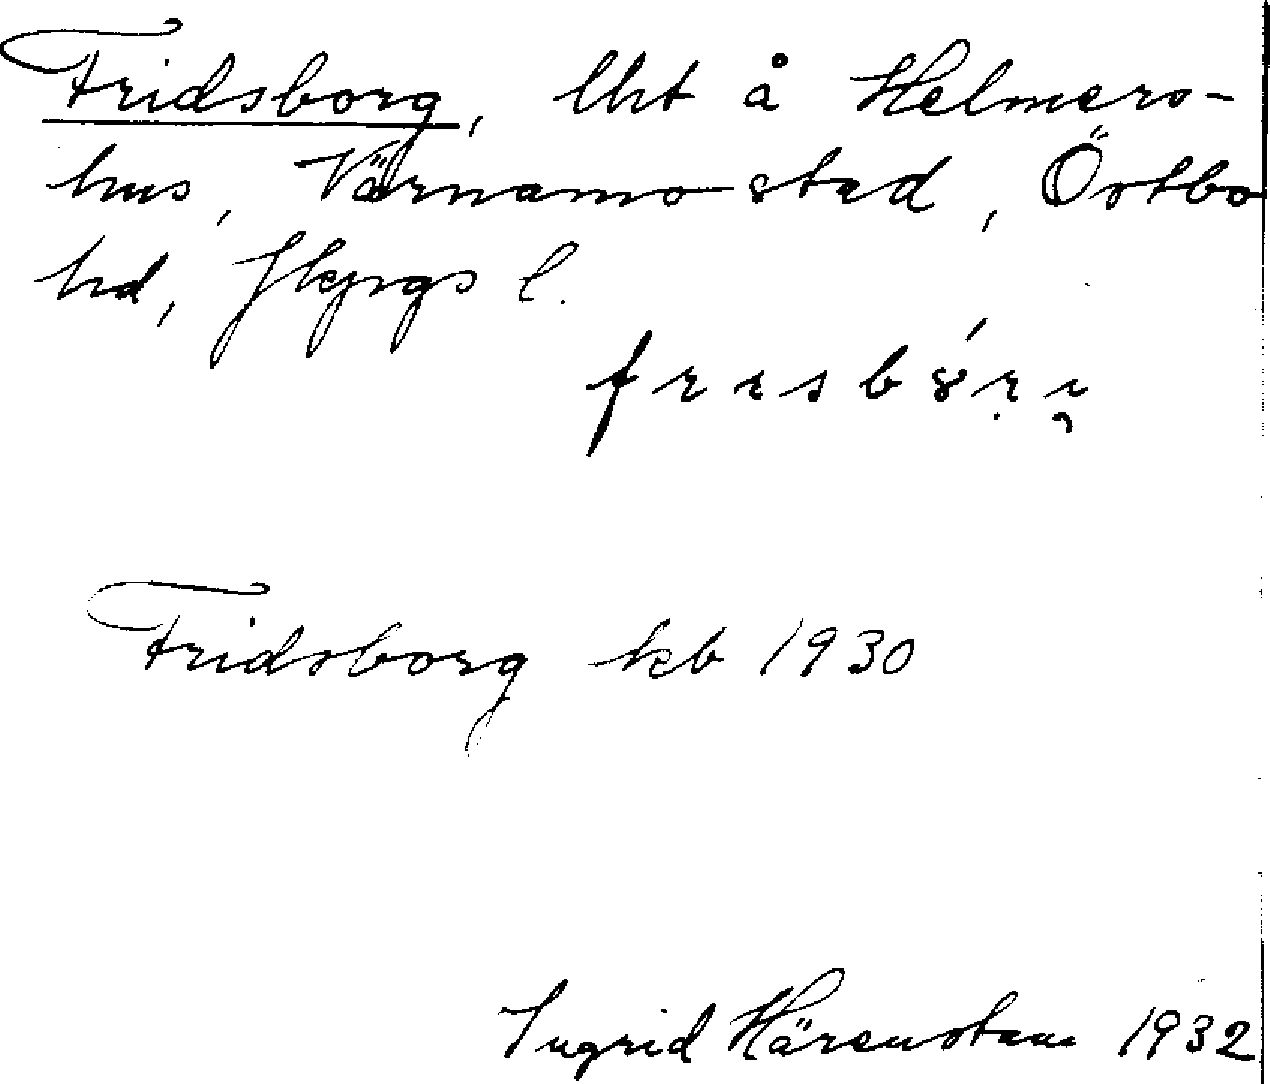 Fridsborg, lht å Helmers-
hus, Värnamo stad, Östbo
hd, Jkpgs l.
Fridsborg kb 1930
Ingrid Härenstam 1932